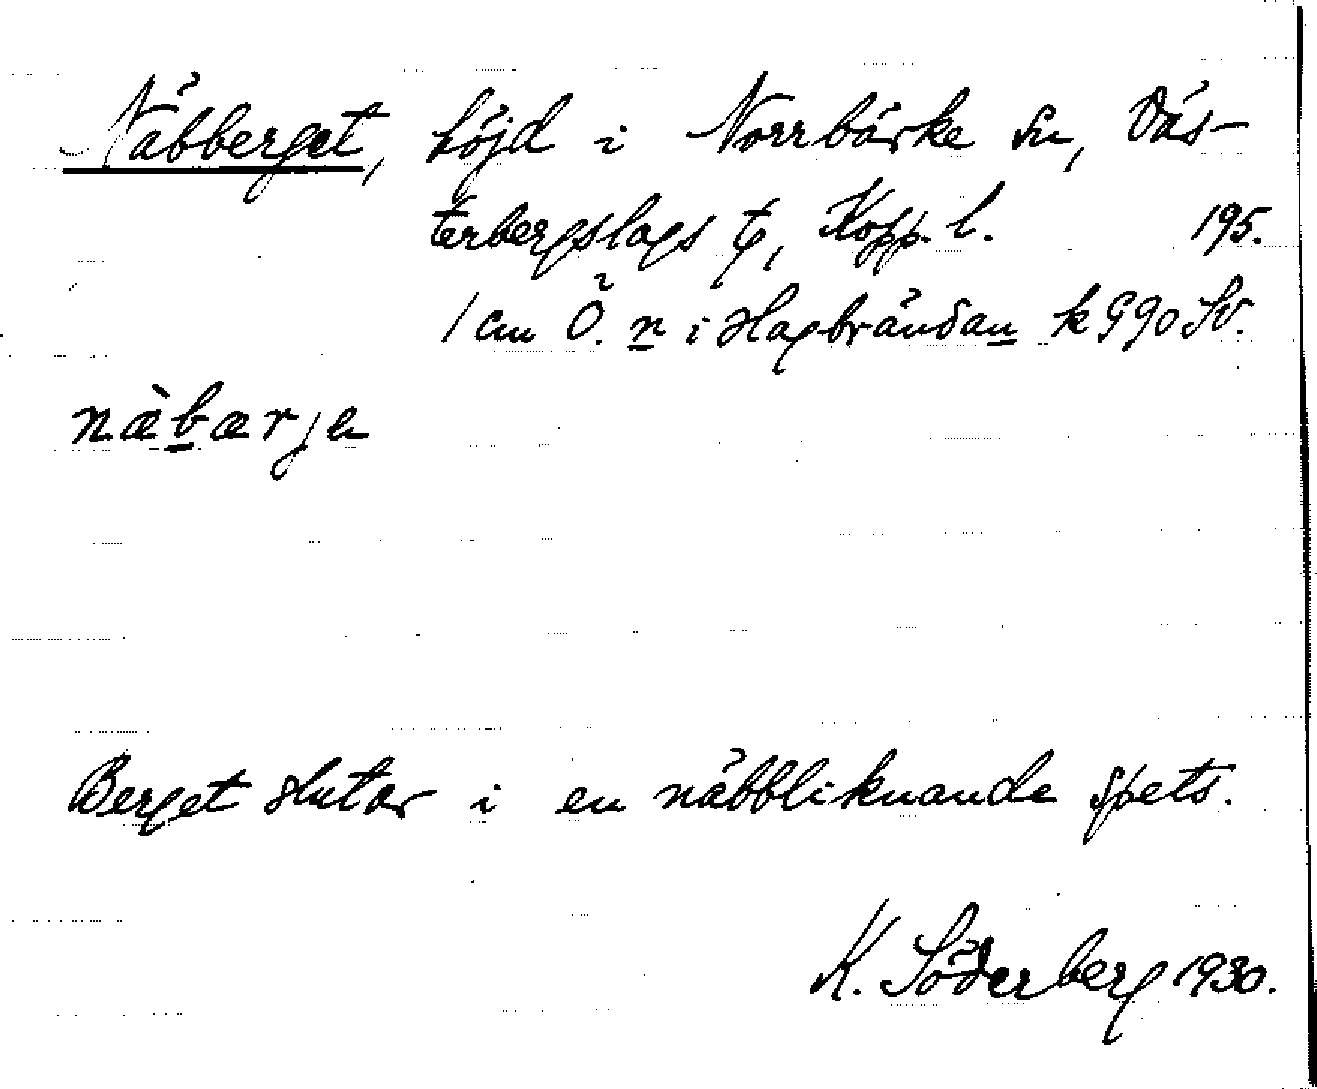 Näbberget, höjd i Norrbärke sn, Väs-
terbergslags tg, Kopp. l. 195.
1 cm Ö. n i Hagbrändan k 990 SV.
næ̀bærja
Berget slutar i en näbbliknande spets.
K. Söderberg 1930.